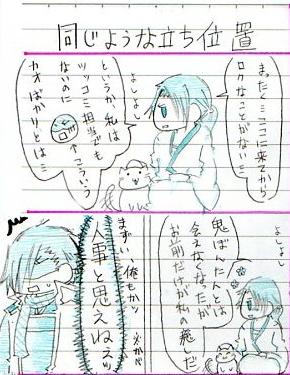 同じような立ち位置
まったくミココに来てから
ロクなことがない…
よしよし
というか、私は
ツッコミ担当でも
ないのに
↑こういう
カオばかりとは…
よしよし
鬼ぼたんたんとは
会えなくなったが
お前だけが私の癒しだ
まずい、俺もかッ
事と思えねぇッ